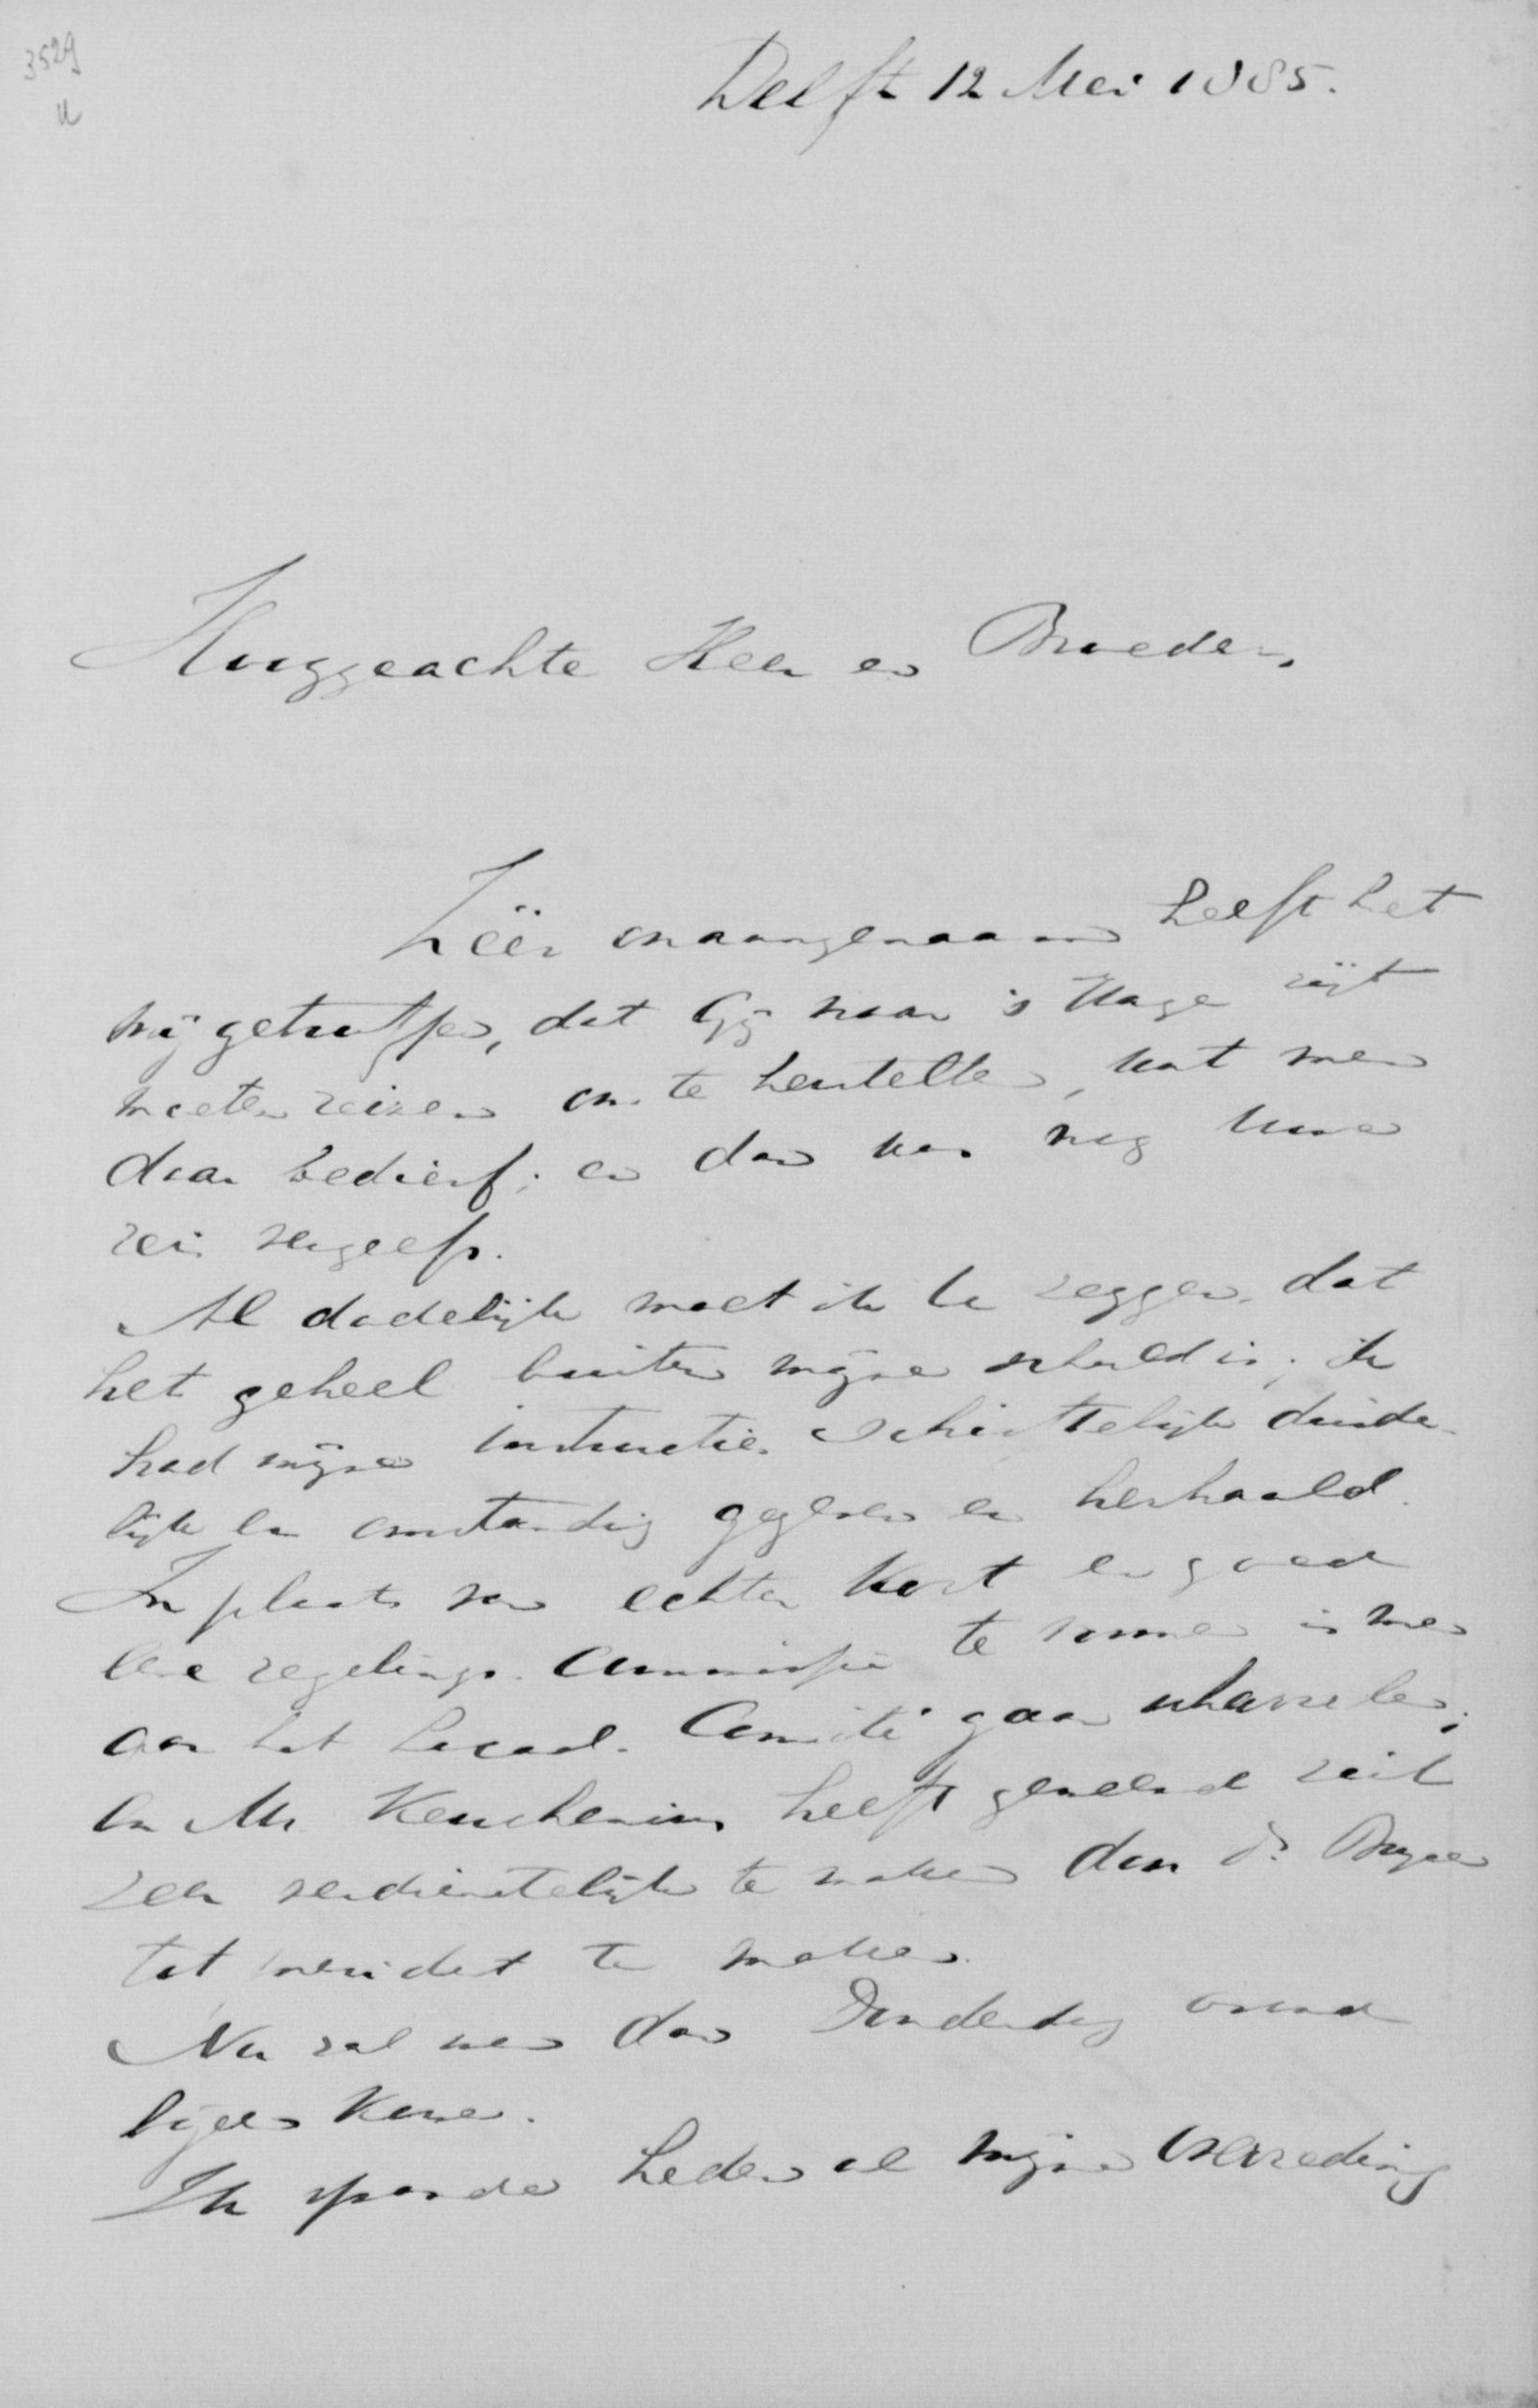 3529
u
Delft 12 Mei 1885.
Hooggeachte Heer en Broeder,
Zéér onaangenaam heeft het
mij getroffen, dat Gij naar 's Hage zijt
moeten reizen om te herstellen, wat men
daar bedierf; en dan was nog Uwe
reis vergeefs.
Al dadelijk moet ik U zeggen, dat
het geheel buiten mijne schuld is; ik
had mijne instructies schriftelijk duide-
lijk en omstandig gegeven en herhaald.
In plaats van echter kort en goed
eene regelings-commissie te nemen is men
aan het locaal-Comité gaan scharrelen;
en Mr. Keuchenius heeft gemeend zich
zeer verdienstelijk te maken door Ds.
tot president te maken.
Nu zal men dan Donderdag avond
bijeen komen.
Ik spande heden al mijne overreding